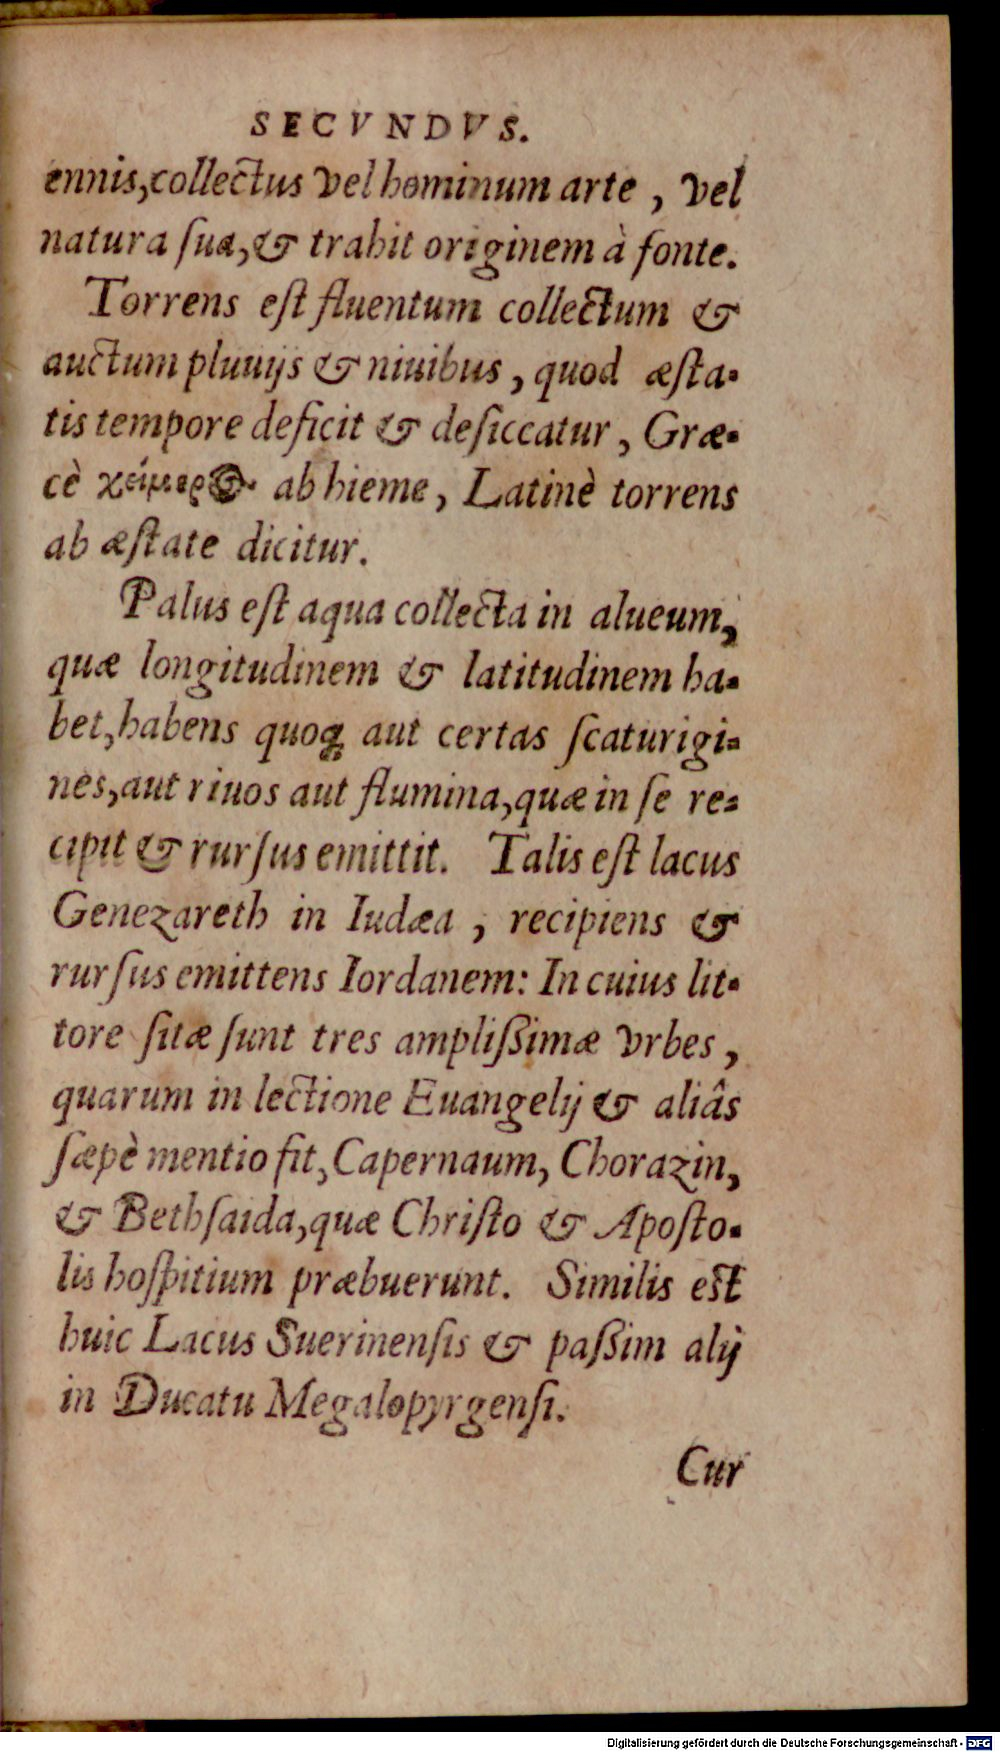 SECVNDVS.
ennis, collectus vel hominum arte, vel
natura sua, & trahit originem à fonte.
Torrens eſt fluentum collectum &
auctum pluuijs & niuibus, quod æſta-
tis tempore deficit & deſiccatur, Græ-
cè χείμαρος ab hieme, Latinè torrens
ab æſtate dicitur.
Palus eſt aqua collecta in alueum,
quæ longitudinem & latitudinem ha-
bet, habens quoqꝫ aut certas ſcaturigi-
nes, aut riuos aut flumina, quæ in ſe re-
cipit & rurſus emittit. Talis eſt lacus
Genezareth in Iudæa, recipiens &
rurſus emittens Iordanem: In cuius lit-
tore ſitæ ſunt tres ampliſsimæ vrbes,
quarum in lectione Euangelij & aliâs
ſæpè mentio fit, Capernaum, Chorazin,
& Bethſaida, quæ Chriſto & Apoſto-
lis hoſpitium præbuerunt. Similis eſt
huic Lacus Suerinenſis & paſsim alij
in Ducatu Megalopyrgenſi.
Cur
Digitalisierung gefördert durch die Deutsche Forschungsgemeinschaft - DFG